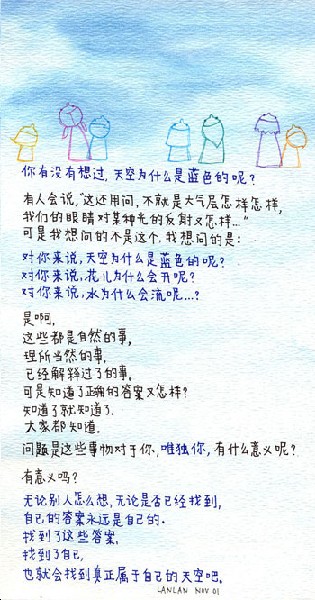 你有没有想过, 天空为什么是蓝色的呢?
有人会说, "这还用问, 不就是大气层怎样怎样,
我们的眼睛对某种光的反射又怎样..."
可是我想问的不是这个, 我想问的是:
对你来说, 天空为什么是蓝色的呢?
对你来说, 花儿为什么会开呢?
对你来说, 水为什么会流呢...?
是啊,
这些都是自然的事,
理所当然的事,
已经解释过了的事,
可是知道了正确的答案又怎样?
知道了就知道了.
大家都知道.
问题是这些事物对于你, 唯独你, 有什么意义呢?
有意义吗?
无论别人怎么想, 无论是否已经找到,
自己的答案永远是自己的.
找到了这些答案,
找到了自己,
也就会找到真正属于自己的天空吧.
-ANLAN NOV 01